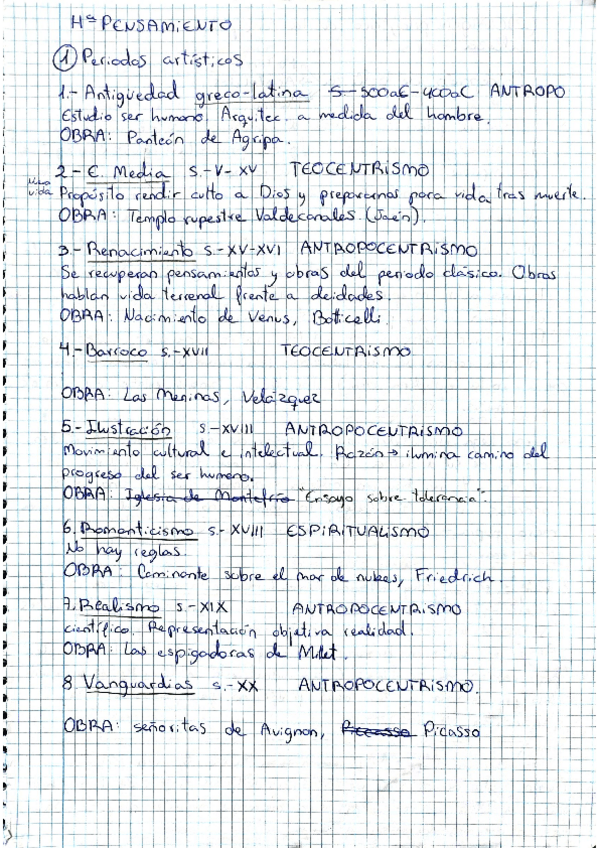 Hª PENSAMIENTO
① Periodos artísticos
1.- Antiguedad greco-latina S-500aC-400aC ANTROPO
Estudio ser humano. Arquitec. a medida del hombre.
OBRA: Panteón de Agripa.
2.- E. Media s.-V-XV TEOCENTRISMO
vida Propósito rendir culto a Dios y prepararnos para vida tras muerte.
OBRA: Templo rupestre Valdecanales (Jaén).
3.- Renacimiento s-XV-XVI ANTROPOCENTRISMO
Se recuperan pensamientos y obras del periodo clásico. Obras
hablan vida terrenal frente a deidades.
OBRA: Nacimiento de Venus, Botticelli
4.- Barroco s.-XVII TEOCENTRISMO
OBRA: Las Meninas, Velázquez
5.- Ilustración s-XVIII ANTROPOCENTRISMO
Movimiento cultural e intelectual. Razón → ilumina camino del
progreso del ser humano.
OBRA: Iglesia de Montefrío "Ensayo sobre tolerancia".
6. Romanticismo s-XVIII ESPIRITUALISMO
No hay reglas.
OBRA: Caminante sobre el mar de nubes, Friedrich.
7. Realismo s-XIX ANTROPOCENTRISMO
científico. Representación objetiva realidad.
OBRA: Las espigadoras de Millet.
8 Vanguardias s.-XX ANTROPOCENTRISMO.
OBRA: señoritas de Avignon, Picasso Picasso